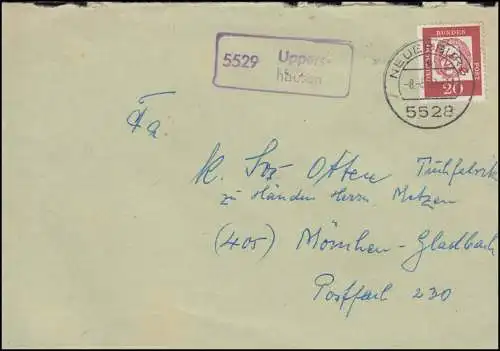 5529 Uppers-
hausen
NEUERBURG
-8.
5528
DEUTSCHE
BUNDES
POST
20
Fa.
K. Jos Otten Tuchfabrik
zu Händen Herrn Metzen
(405) Mönchen-Gladbach
Postfach 230